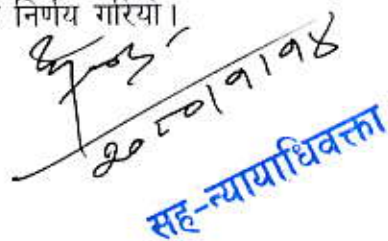 निर्णय गरियो।
२०८०।१।१४
सह-न्यायाधिवक्ता